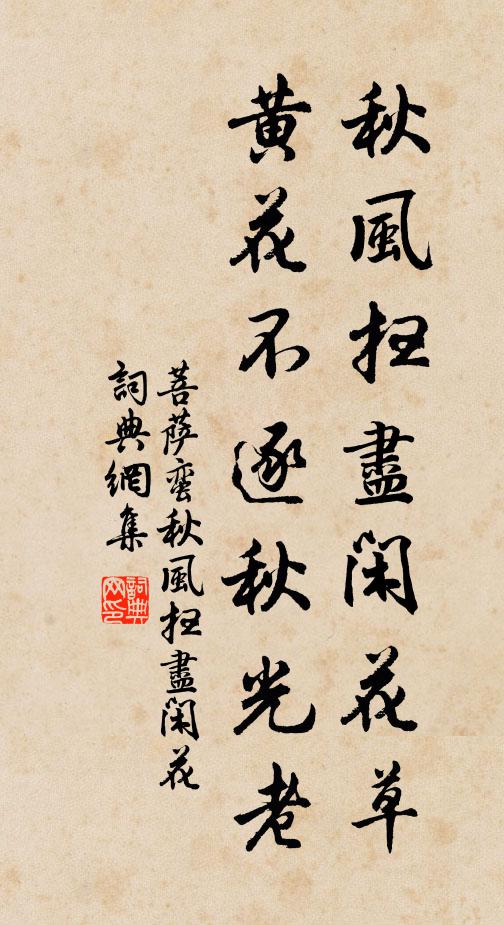 秋風掃盡閑花草
黃花不逐秋光老
菩薩蠻秋風掃盡閑花
詞典網集
詞典網印